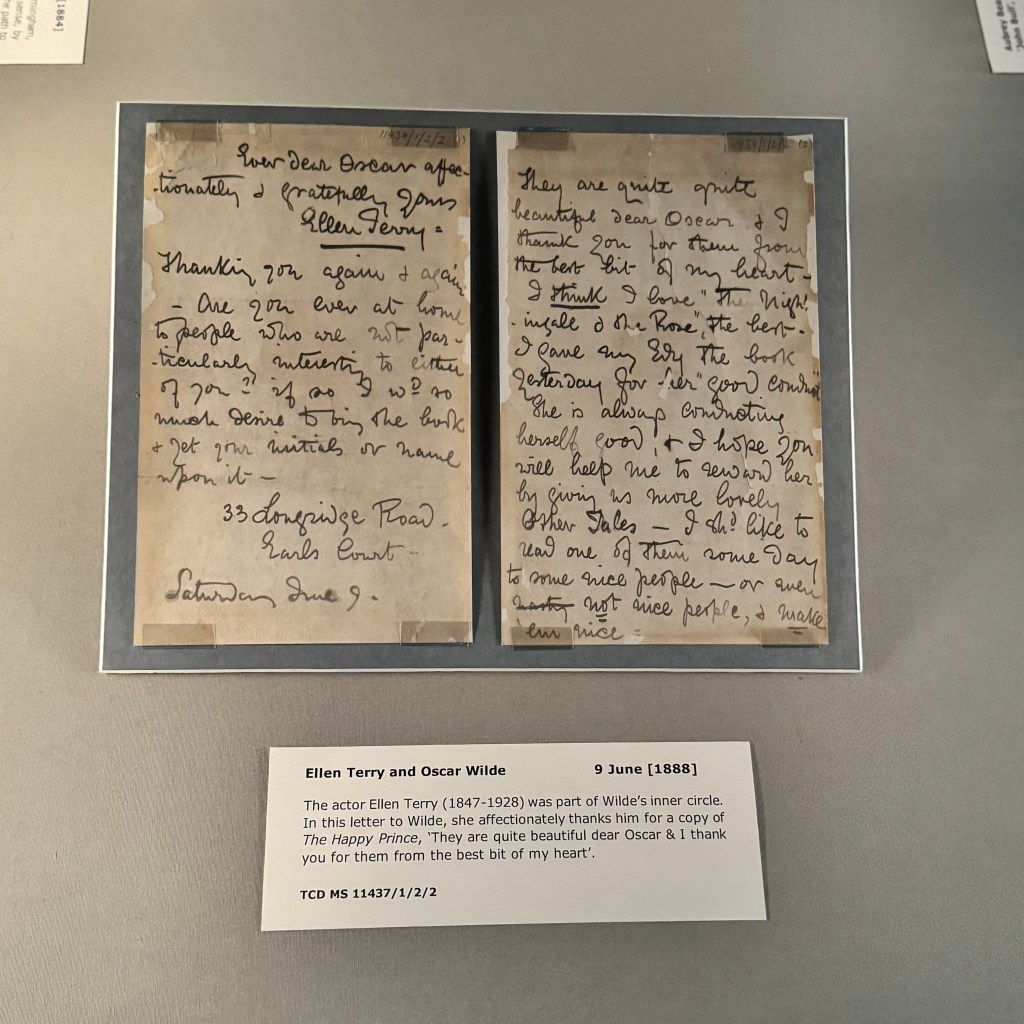 [1884]
mingham,
sense, by
he path to
Aubrey Bea
'John Bull',
11437/1/2/2
Ever dear Oscar affec-
-tionately & gratefully yours
Ellen Terry =
Thanking you again & again
- Are you ever at home
to people who are not par-
-ticularly interesting to either
of you? if so I wd so
much desire to bring the book
& get your initials or name
upon it -
33 Longridge Road.
Earls Court -
Saturday June 9.
11437/1/2/2 (2)
They are quite quite
beautiful dear Oscar & I
thank you for them from
the best bit of my heart -
I think I love "The Night
-ingale & the Rose", the best -
I gave my Edy the book
yesterday for her "good conduct"
She is always conducting
herself good! & I hope you
will help me to reward her
by giving us more lovely
Other Tales - I shd like to
read one of them some day
to some nice people - or even
nasty not nice people, & make
'em nice =
Ellen Terry and Oscar Wilde 9 June [1888]
The actor Ellen Terry (1847-1928) was part of Wilde's inner circle.
In this letter to Wilde, she affectionately thanks him for a copy of
The Happy Prince, 'They are quite beautiful dear Oscar & I thank
you for them from the best bit of my heart'.
TCD MS 11437/1/2/2